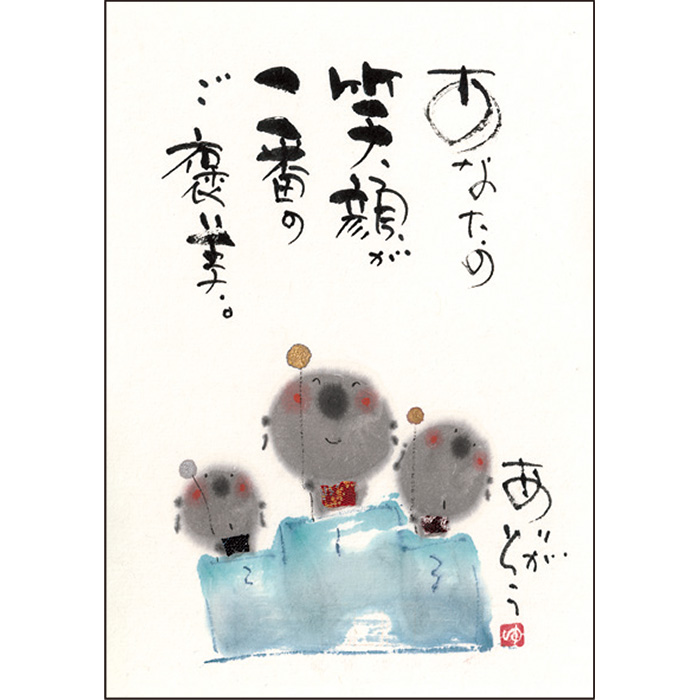 あなたの
笑顔が
一番の
ご褒美。
ありがとう
ゆ
2
1
3